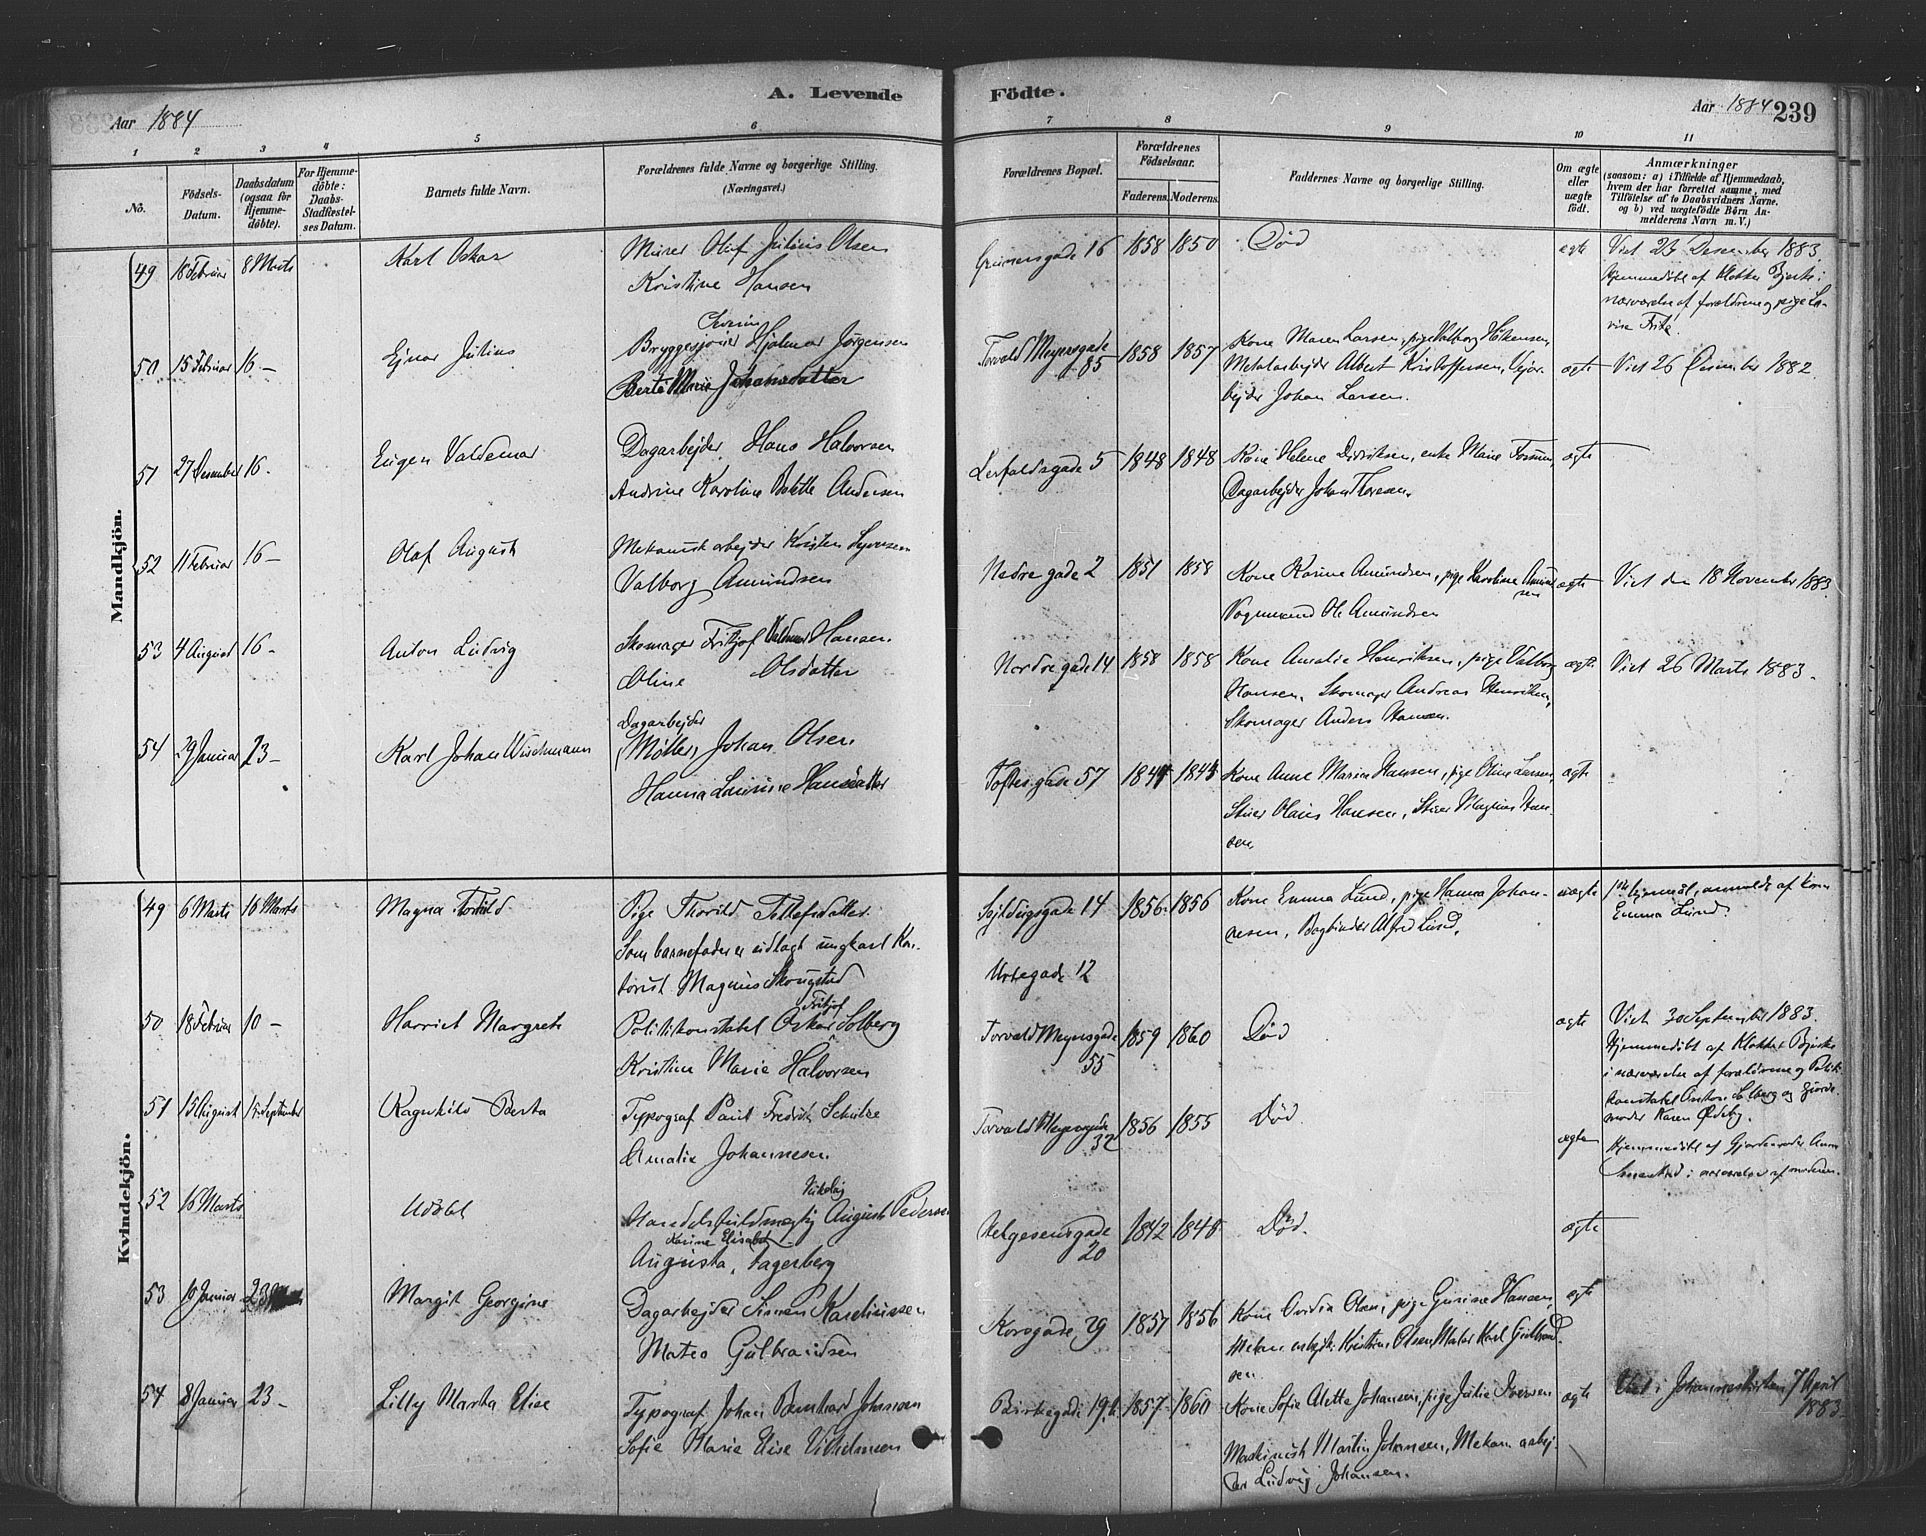 A. Levende
Födte.
Aar 1884
Aar 1884
239
1 2 3 4 5 6 7 8 9 10 11
No.
Födsels-Datum.
Daabsdatum (ogsaa for Hjemme-döbte).
For Hjemme-döbte: Daabs-Stadfæstel-ses Datum.
Barnets fulde Navn.
Forældrenes fulde Navne og borgerlige Stilling.
(Næringsvei.)
Forældrenes Bopæl.
Forældrenes Födselsaar.
Faderens. Moderens.
Faddernes Navne og borgerlige Stilling.
Om ægte eller uægte födt.
Anmærkninger
(saasom: a) i Tilfælde af Hjemmedaab,
hvem der har forrettet samme, med
Tilföielse af to Daabsvidners Navne.
og b) ved uægtefödte Börn An-
melderens Navn m. V.)
Mandkjön.
49 18 Februar 8 Marts Karl Oskar
Murer Olaf Julius Olsen
Kristine Hansen
Grünersgade 16 1858 1850 Död ægte
Viet 23 Desember 1883.
Hjemmedöbt af Klokker Bjerke i
nærværelse af forældrene og pige La-
vise
50 15 Februar 16 — Ejnar Julius
Severin
Bryggesjouer Hjalmar Jørgensen
Berte Marie Johansdatter
Torvald Meyersgade 85 1858 1857
Kone Maren Larsen, pige Valborg Håkensen,
Metalarbejder Albert Kristoffersen,
bejder Johan Larsen.
ægte Viet 26 Desember 1882.
51 27 Desember 16. Eugen Valdemar
Dagarbejder Hans Halvorsen
Andrine Karoline Bolette Andersen
Lerfaldsgade 5 1848 1848
Kone Helene Didriksen, enke Marie
Dagarbejder Johan Thoresen.
ægte —
52 11 Februar 16 — Olaf August
Mekanisk arbejder Kristen Syversen
Valborg Amundsen
Nedre gade 2 1851 1858
Kone Karine Amundsen, pige Karoline Amund
sen
Vognmand Ole Amundsen
ægte Viet den 18 November 1883.
53 4 August 16 - Anton Ludvig
Skomager Fritjof Valdemar Hansen
Oline Olsdatter
Nordregade 14 1858 1858
Kone Amalie Henriksen, pige Valborg
Hansen, Skomager Andreas Henriksen,
Skomager Anders Hansen.
ægte Viet 26 Marts 1883.
54 29 Januar 23 — Karl Johan Wischmann
Dagarbejder
(Møller) Johan Olsen
Hanna Laurine Hansdatter
Toftesgade 57 1844 1845
Kone Anne Marie Hansen, pige Oline Larsen,
Stuer Olaus Hansen, Stuer Magnus Han-
sen.
ægte
Kvindekjön.
49 6 Marts 10 Marts Magna Torild
Pige Thorild Tollefsdatter
Som barnefader er udlagt ungkarl Kon-
torist Magnus Skougstad
Sejldugsgade 14
Urtegade 12
1856 1856
Kone Emma Lund, pige Hanna Johan-
nesen, Bogbinder Alfred Lund.
uægte
1ste lejermål, anmeldt af kone
Emma Lund.
50 18 Februar 10 — Harriet Margrete
Fritjof
Politikonstabel Oskar Solberg
Kristine Marie Halvorsen
Torvald Meyersgade 55 1859 1860 Död ægte
Viet 30 September 1883.
Hjemmedöbt af Klokker Bjerke
i nærværelse af forældrene og Politi-
konstabel Anton Solberg og Gjorde-
moder Karen Ødeby.
51 15 August 15 September Ragnhild Berta
Typograf Paul Fredrik Schulze
Amalie Johannesen
Torvald Meyersgade 32 1856 1855 Död. ægte
Hjemmedöbt af Gjordemoder Anna
i nærværelse af moderen.
52 16 Marts Udöbt
Nikolaj
Handelsfuldmægtig August Pedersen
Karine Elisabet
Augusta Fagerberg
Helgesensgade 20 1842 1845 Död. ægte
53 10 Januar 23 Margit Georgine
Dagarbejder Simen Karelinssen
Matea Gulbrandsen
Korsgade 29 1857 1856
Kone Ovidia Olsen, pige Gurine Hansen,
Mekan. arbejder Kristian Olsen, Maler Karl Gulbrand-
sen.
ægte
54 8 Januar 23 — Lilly Marta Elise
Typograf Johan Bernhard Johansen
Sofie Marie Elise Vilhelmsen
Birkegade 19 b. 1857 1860
Kone Sofie Alette Johansen, pige Julie Iversen
Maskinist Martin Johansen, Mekan. arbej-
der Ludvig Johansen.
ægte
Viet i Johanneskirken 7 April
1883.